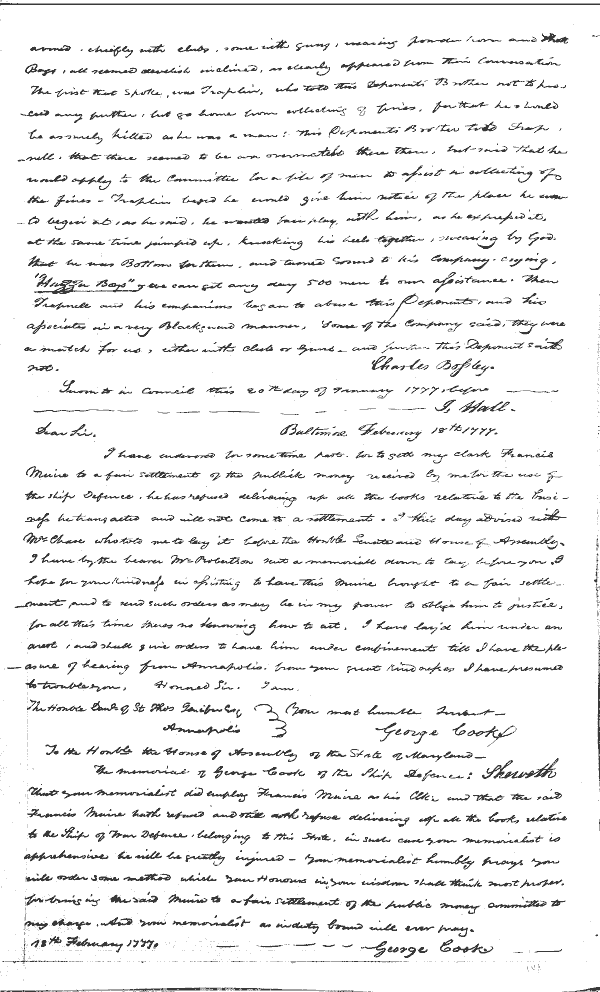 armed, chiefly with clubs, some with guns, wearing powder horn and shott
Bags, all seemed devilish inclined, as clearly appeared from their Conversation
The first that Spoke, was Traplin, who told this Deponents Brother not to pro-
ceed any further, but go home from collecting of fines, for that he should
be assurely killed as he was a man: this Deponents Brother told Trap-
nell, that there seemed to be an overmatch there then, but said that he
would apply to the Committee for a file of men to assist in collecting of
the fines - Traplin beged he would give him notice of the place he was
to begin at, as he said, he wanted fair play, with him, as he expressed it,
at the same time jumped up, knocking his heels together, swearing by God
that he was Bottom for them, and turned round to his Company - crying,
"Huzza Boys" you can get any day 500 men to our assistance. Then
Trapnell and his companions began to abuse this Deponent, and his
associates in a very Blackguard manner, Some of the Company said, they were
a match for us, either with Clubs or Guns - and further this Deponent saith
not. Charles Bosley.
Sworn to in Council this 20th day of January 1777, before
J. Hall.
Dear Sir. Baltimore February 18th 1777.
I have endeavored for some time past, for to gett my clark Francis
Muire to a fair settlement of the publick money received by me for the use of
the ship Defence, he has refused delivering up all the books relative to the Busi-
ness he transacted and will not come to a settlement. I this day advised with
Mr Chase who told me to lay it before the Honble Senate and House of Assembly.
I have by the bearer Mr Robertson sent a memorial down to lay before you, I
hope for your kindness in assisting to have this Muire brought to a fair settle-
ment, and to send such orders as may be in my power to oblige him to justice,
for all this time theres no knowing how to act, I have lay'd him under an
arest, and shall give orders to have him under confinement till I have the ple-
asure of hearing from Annapolis. from your great kindness I have presumed
to trouble you, Honored Sir. I am
The Honble Danl of St Thos Jenifer Esq Your most humble Servant -
Annapolis George Cook
To the Honble the House of Assembly of the State of Maryland -
The memorial of George Cook of the Ship Defence: Sheweth
That your memorialist did employ Francis Muire as his Clk, and that the said
Francis Muire hath refused and still doth refuse delivering up all the books relative
to the Ship of War Defence, belonging to this State, in such case your memorialist is
apprehensive he will be greatly injured - Your memorialist humbly prays you
will order some method which Your Honours in your wisdom shall think most proper.
for bringing the said Muire to a fair settlement of the public money committed to
my charge. And your memorialist as in duty bound will ever pray.
18th February 1777. George Cook